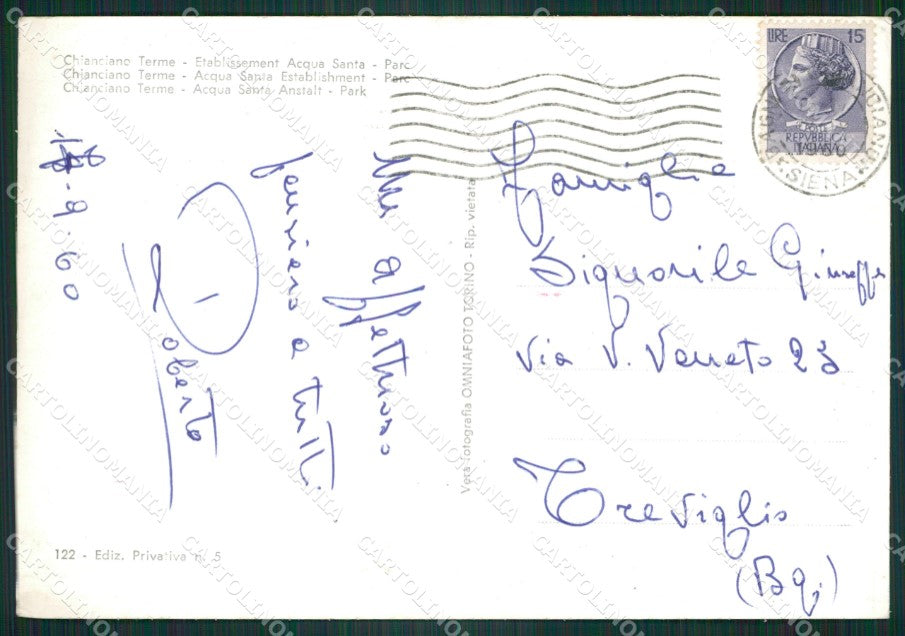 Chianciano Terme - Etablissement Acqua Santa - Parc
Chianciano Terme - Acqua Santa Establishment - Parc
Chianciano Terme - Acqua Santa Anstalt - Park
9.60
Un affettuoso
pensiero a tutti
Roberto
122 - Ediz. Privativa n. 5
Vera fotografia OMNIAFOTO TORINO - Rip. vietata
LIRE 15
REPVBBLICA
ITALIANA
SIENA
Famiglia
Signorile Giuseppe
Via V. Veneto 23
Treviglio
(Bg)
CARTOLINOMANIA